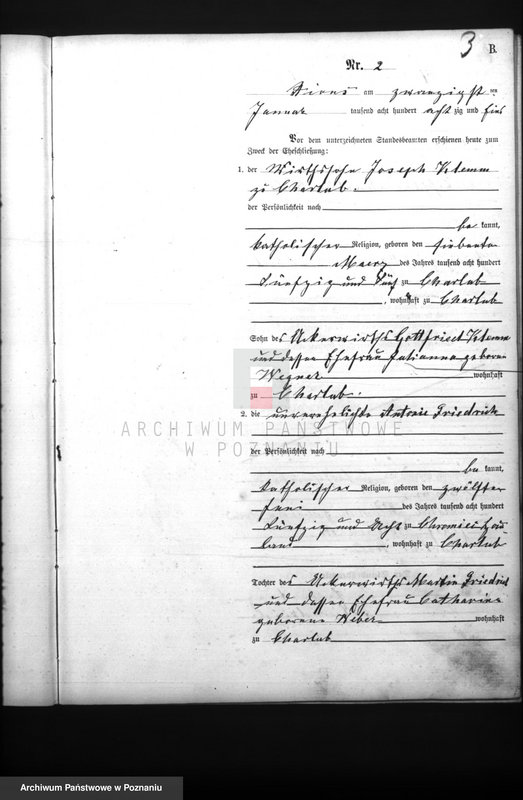 3 B.
Nr. 2
am zwanzigsten
Januar tausend acht hundert achtzig und eins
Vor dem unterzeichneten Standesbeamten erschienen heute zum
Zweck der Eheschließung:
1. der Wirthssohn Joseph Klemm
zu Chartab.
der Persönlichkeit nach
be kannt,
katholischer Religion, geboren den siebenten
Maerz des Jahres tausend acht hundert
fünfzig und fünf zu Chartab
, wohnhaft zu Chartab
Sohn des Ackerwirths Gottfried Klemm
und dessen Ehefrau Julianna geboren
Wegner wohnhaft
zu Chartab.
2. die unverehelichte Antonie Friedrich
ARCHIWUM PAŃSTWOWE
W POZNANIU
der Persönlichkeit nach
be kannt,
katholischer Religion, geboren den zwölften
Juni des Jahres tausend acht hundert
fünfzig und acht zu
land , wohnhaft zu Chartab
Tochter des Ackerwirths Martin Friedrich
und dessen Ehefrau Catharina
geborene Weber wohnhaft
zu Chartab
Archiwum Państwowe w Poznaniu